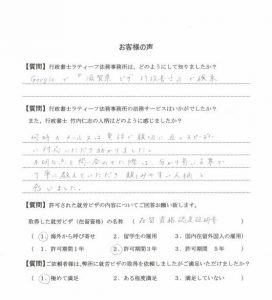 お客様の声
【質問】行政書士ラティーフ法務事務所は、どのようにして知りましたか？
Googleで「滋賀県 ビザ 行政書士」で検索
【質問】行政書士ラティーフ法務事務所の法務サービスはいかがでしたか？
また、行政書士 竹内仁志の人柄はどのように感じましたか？
に対応いただき助かりました。
不明な点を問合わせた際は、分かり易く
丁寧に教えていただき 親しみやすい人柄と
【質問】許可された就労ビザの内容についてご回答お願い致します。
取得した就労ビザ（在留資格）の名称（ 在留資格認定証明書 ）
（ 1. 海外から呼び寄せ 2. 留学生の雇用 3. 国内在留外国人の雇用）
（ 1. 許可期間１年 2. 許可期間３年 3. 許可期間 ５年 ）
【質問】ご依頼者様は、弊所に就労ビザの取得を依頼しましたがご満足いただけましたか？
（ 1. 極めて満足 2. ある程度満足 3. 満足していない ）